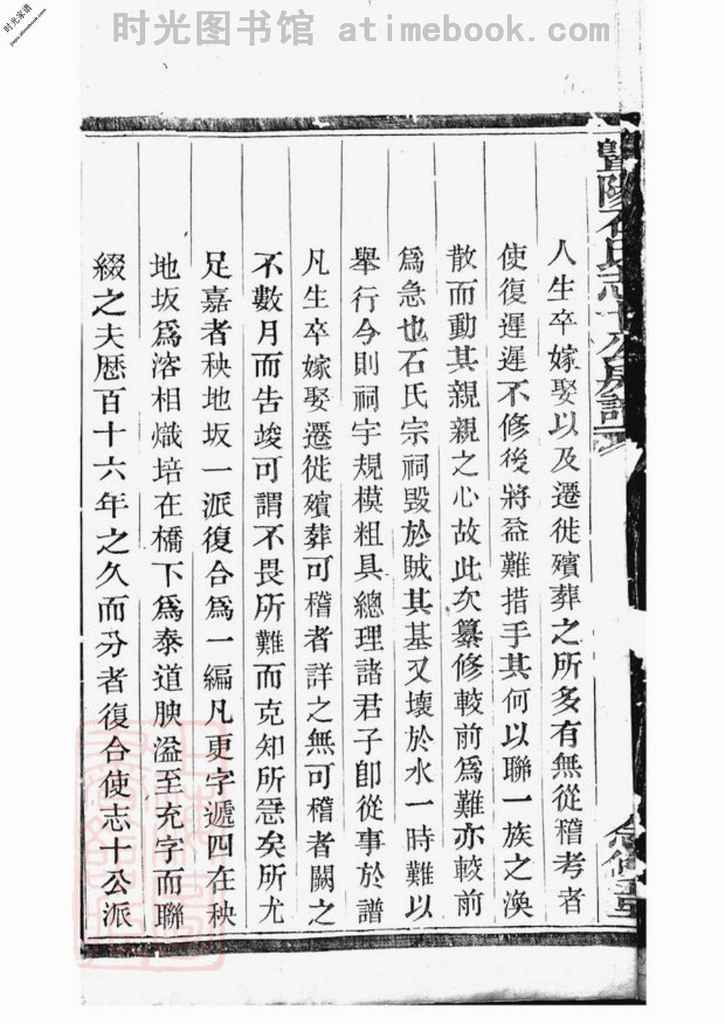 时光图书馆 atimebook.com
时光家谱
暨陽石氏志十公房譜
人生卒嫁娶以及遷徙殯葬之所多有無從稽考者
使復遲遲不修後將益難措手其何以聯一族之渙
散而動其親親之心故此次纂修較前爲難亦較前
爲急也石氏宗祠毀於賊其基又壞於水一時難以
舉行今則祠宇規模粗具總理諸君子卽從事於譜
凡生卒嫁娶遷徙殯葬可稽者詳之無可稽者闕之
不數月而告竣可謂不畏所難而克知所急矣所尤
足嘉者秧地坂一派復合爲一編凡更字遞四在秧
地坂爲溶相熾培在橋下爲泰道腴溢至充字而聯
綴之夫歷百十六年之久而分者復合使志十公派